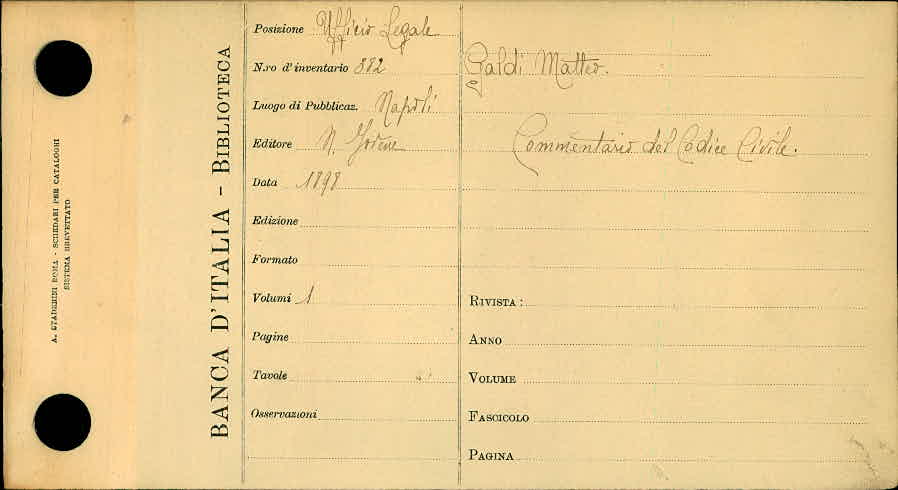 A. STADERINI ROMA - SCHEDARI PER CATALOGHI
SISTEMA BREVETTATO
BANCA D'ITALIA - BIBLIOTECA
Posizione Ufficio Legale
N.ro d'inventario 382
Luogo di Pubblicaz. Napoli
Editore N. Jovene
Data 1898
Edizione
Formato
Volumi 1
Pagine
Tavole
Osservazioni
Galdi Matteo.
Commentario del Codice Civile.
RIVISTA :
ANNO
VOLUME
FASCICOLO
PAGINA